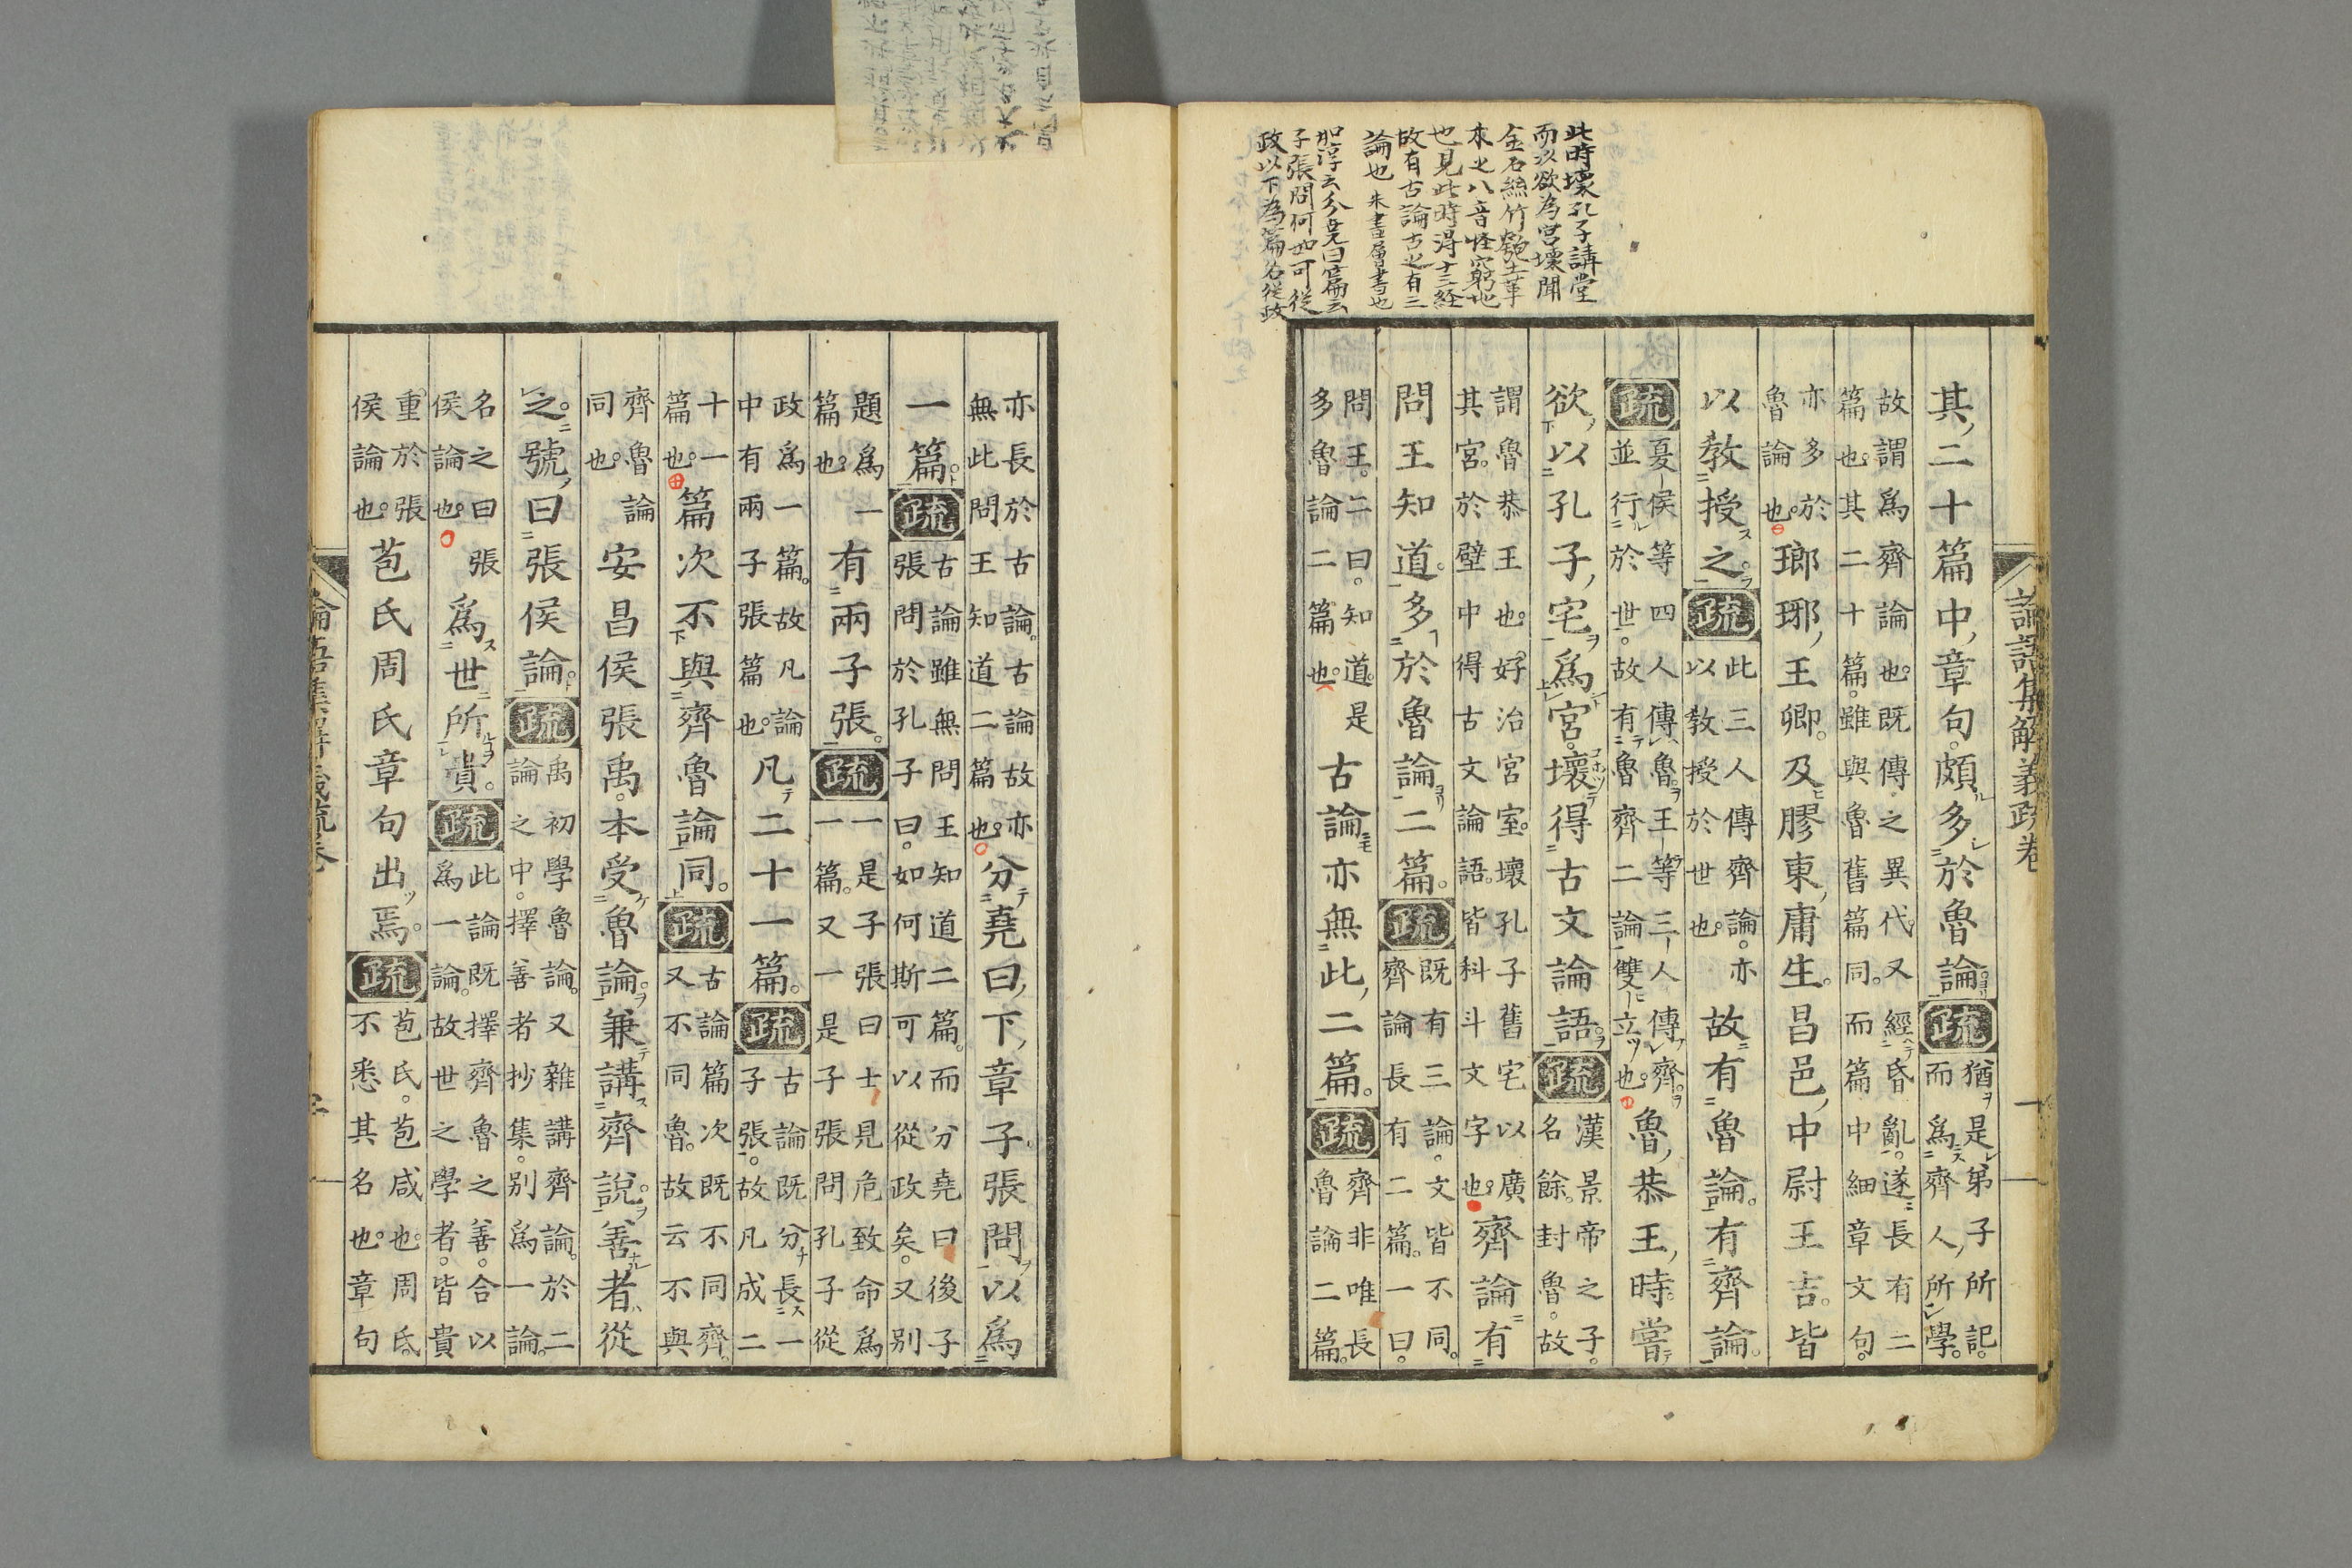 此時壞孔子講堂
而以欲為宮壞聞
金石絲竹匏土革
木之八音怪窮地
也見此時得十三経
故有古論古之有三
論也 朱書層書也
如淳云分尭曰篇云
子張問何如可從
政以下為篇名從政
論語集解義疏卷 一
其二十篇中章句頗多於魯論 疏 猶是弟子所記。而爲齊人所學。
故謂爲齊論也。既傳之異代。又經昏亂。遂長有二篇也。其二十篇。雖與魯舊篇同。而篇中細章文句。
亦多於魯論也。 瑯琊王卿。及膠東庸生。昌邑中尉王吉。皆
以教授之。 疏 此三人傳齊論。亦以教授於世也。 故有魯論。有齊論。
疏 夏侯等四人傳魯。王等三人傳齊。並行於世。故有魯齊二論雙立也。 魯恭王時。嘗
欲以孔子宅爲宮。壞得古文論語。 疏 漢景帝之子。名餘。封魯。故
謂魯恭王也。好治宮室。壞孔子舊宅以廣其宮。於壁中得古文論語。皆科斗文字也。 齊論有
問王知道。多於魯論二篇。 疏 既有三論。文皆不同。齊論長有二篇。一曰。
問王。二曰。知道。是多魯論二篇也。 古論亦無此二篇。 疏 齊非唯長魯論二篇。
亦長於古論。古論故亦無此問王知道二篇也。 分堯曰下章子張問以爲
一篇。 疏 古論雖無問王知道二篇。而分堯曰後子張問於孔子曰。如何斯可以從政矣。又别
題爲一篇也。 有兩子張。 疏 一是子張曰士見危致命爲一篇。又一是子張問孔子從
政爲一篇。故凡論中有兩子張篇也。 凡二十一篇。 疏 古論既分長一子張。故凡成二
十一篇也。 篇次不與齊魯論同。 疏 古論篇次既不同齊。又不同魯。故云不與
齊魯論同也。 安昌侯張禹。本受魯論。兼講齊說。善者從
之。號曰張侯論。 疏 禹初學魯論。又雜講齊論。於二論之中。擇善者抄集。别爲一論。
名之曰張侯論也。 爲世所貴。 疏 此論既擇齊魯之善。合以爲一論。故世之學者。皆貴
重於張侯論也。 苞氏周氏章句出焉。 疏 苞氏。苞咸也。周氏。不悉其名也。章句